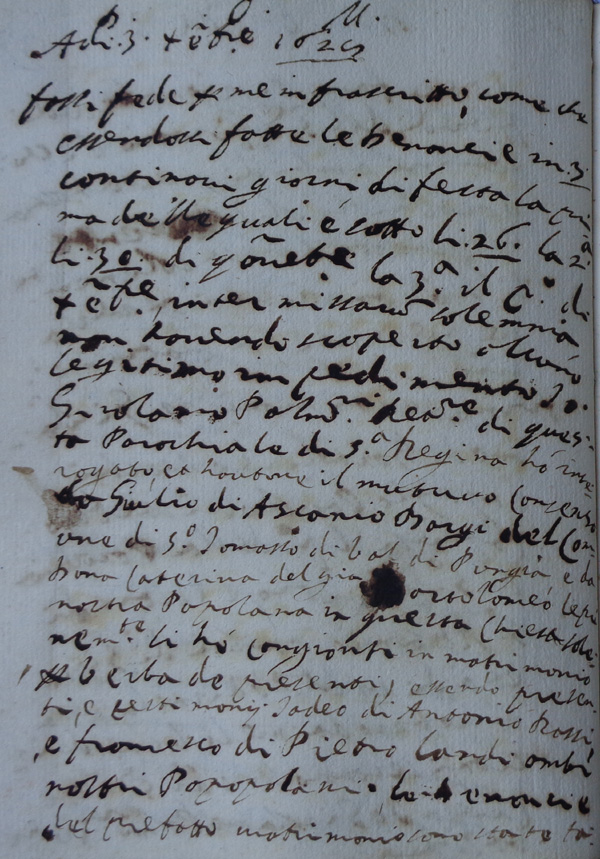 M.
Adi. 3. xẽbre 1629
fassi fede p me infrascritto, come che
essendosi fatte le denoncie in 3
continovi giorni di festa la pri
ma delle quali é sotto li. 26. la 2.ª
li. 30. di 9õuebe la 3.ª il p.º di
xẽbre, inter missarũ solemnia
non havendo scoperto alcuno
legitimo impedimento Jo.
Girolamo di ques-
ta Parochiale di S.ª Regina hó inte-
rogato, et havutone il mutuuo Consenso
da Giulio di Ascanio Borgi del Com-
une di S.º Tomasso di bal di e da
Dona Caterina del gia Bortolomeo
nostra Popolana in questa Chiesa sole-
nem.te li hó congionti in matrimonio
p berba de presenti, essendo presen-
ti, e testimonij Tadeo di Antonio Rossi,
e fromesco di Pietro Landi ombi
nostri Popopolani. le denoncie
del prefatto matrimonio sono state fa-